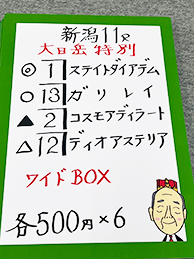 新潟11R
大日岳特別
◎1ステイトダイアデム
○13ガリレイ
▲2コスモアディラート
△12ディオアステリア
ワイドBOX
各500円×6